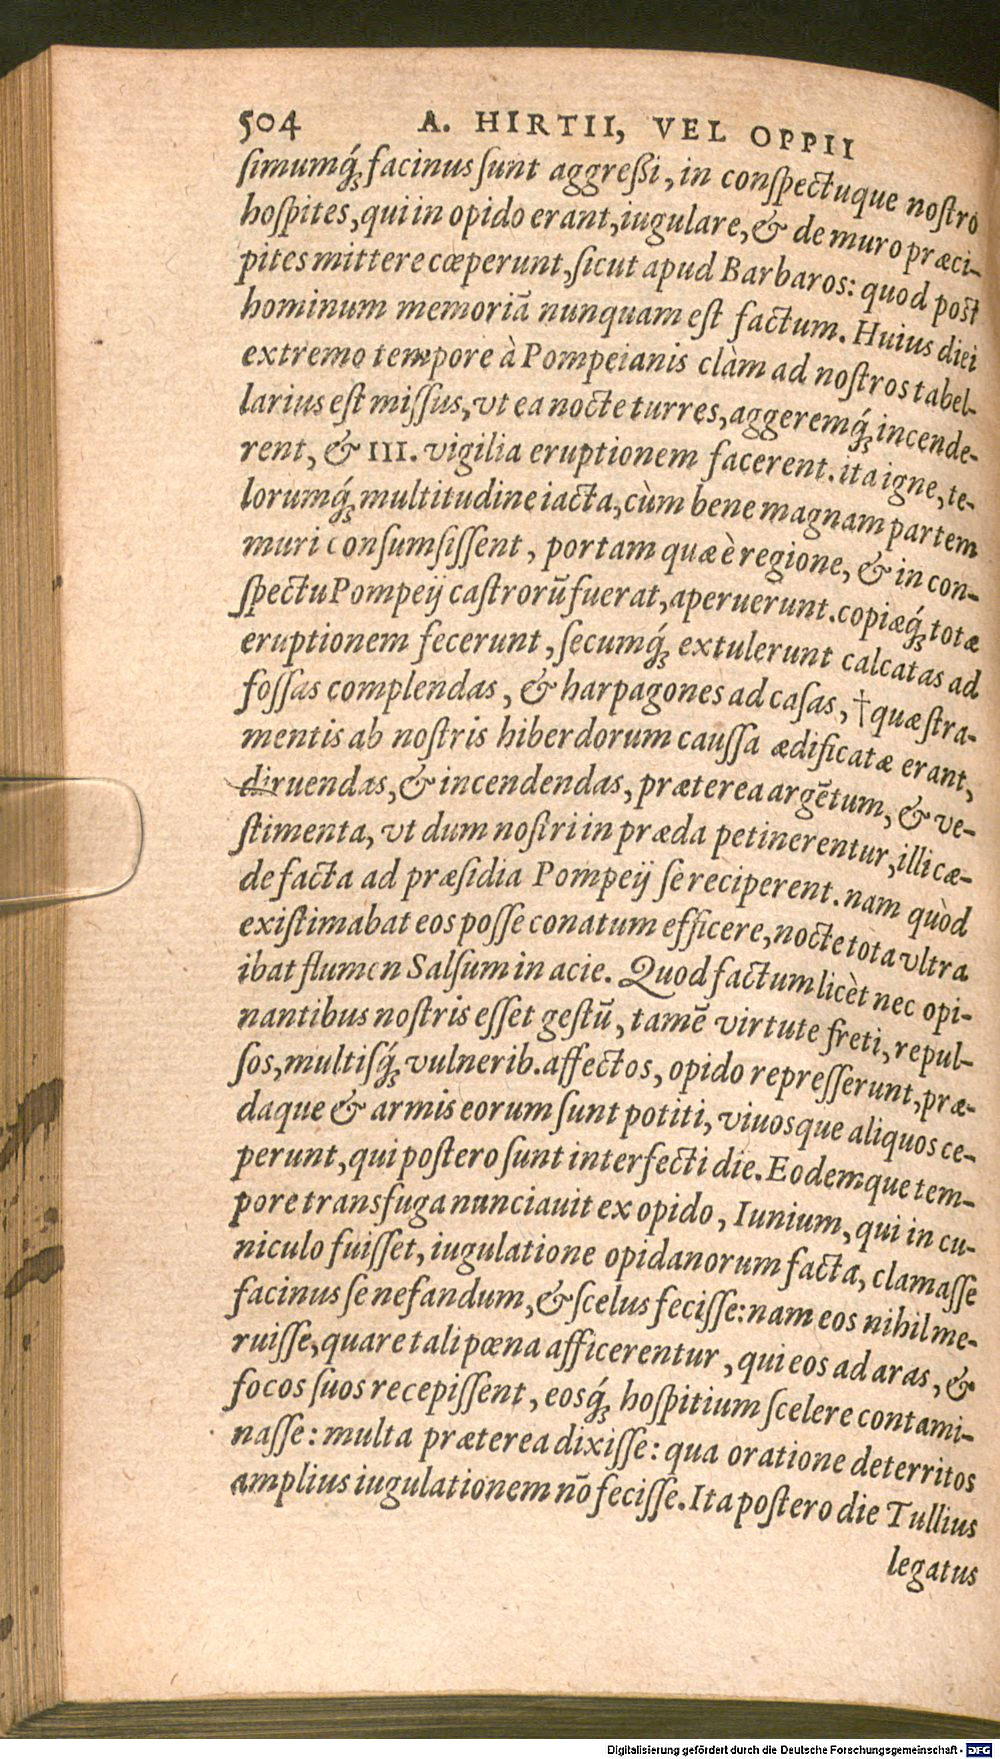 504 A. HIRTII, VEL OPPII
ſimumq́ꝫ facinus ſunt aggreßi, in conſpectuque noſtro
hoſpites, qui in opido erant, iugulare, & de muro præci-
pites mittere cœperunt, ſicut apud Barbaros: quod poſt
hominum memoriā nunquam eſt factum. Huius diei
extremo tempore à Pompeianis clàm ad noſtros tabel-
larius eſt miſſus, vt ea nocte turres, aggeremq́ꝫ incende-
rent, & III. vigilia eruptionem facerent. ita igne, te-
lorumq́ꝫ multitudine iacta, cùm bene magnam partem
muri conſumſiſſent, portam quæ è regione, & in con-
ſpectu Pompeij caſtrorū fuerat, aperuerunt. copiæq́ꝫ totæ
eruptionem fecerunt, ſecumq́ꝫ extulerunt calcatas ad
foſſas complendas, & harpagones ad caſas, †quæ ſtra-
mentis ab noſtris hibernorum cauſſa ædificatæ erant,
diruendas, & incendendas, præterea argētum, & ve-
ſtimenta, vt dum noſtri in præda petinerentur, illi cæ-
de facta ad præſidia Pompeij ſe reciperent. nam quòd
exiſtimabat eos poſſe conatum efficere, nocte tota vltra
ibat flumen Salſum in acie. Quod factum licèt nec opi-
nantibus noſtris eſſet geſtū, tamē virtute freti, repul-
ſos, multiſq́ꝫ vulnerib. affectos, opido repreſſerunt, præ-
daque & armis eorum ſunt potiti, viuosque aliquos ce-
perunt, qui poſtero ſunt interfecti die. Eodemque tem-
pore transfuga nunciauit ex opido, Iunium, qui in cu-
niculo fuiſſet, iugulatione opidanorum facta, clamaſſe
facinus ſe nefandum, & ſcelus feciſſe: nam eos nihil me-
ruiſſe, quare tali pœna afficerentur, qui eos ad aras, &
focos ſuos recepiſſent, eosq́ꝫ hoſpitium ſcelere contami-
naſſe: multa præterea dixiſſe: qua oratione deterritos
amplius iugulationem nō feciſſe. Ita poſtero die Tullius
legatus
Digitalisierung gefördert durch die Deutsche Forschungsgemeinschaft - DFG